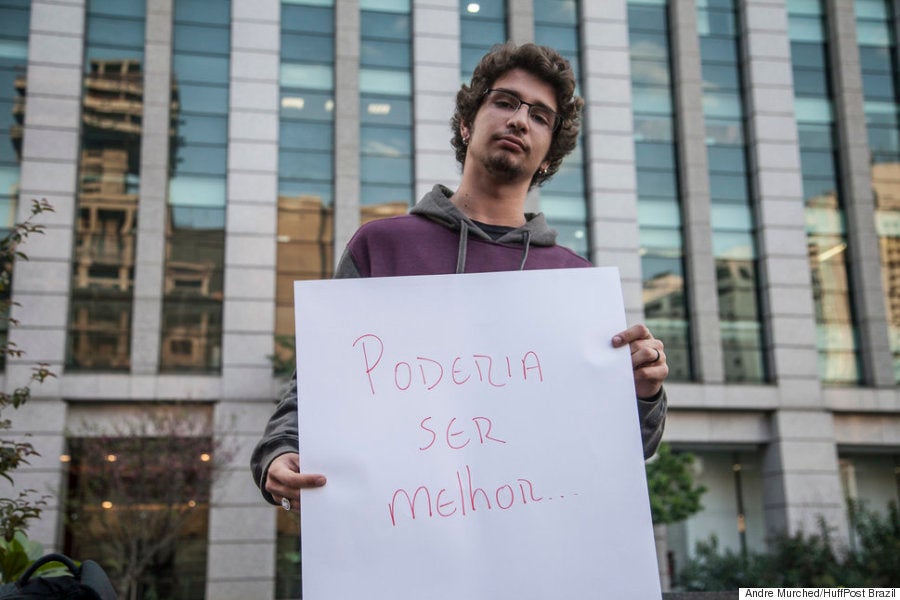 PODERIA
SER
melhor...
Andre Murched/HuffPost Brazil